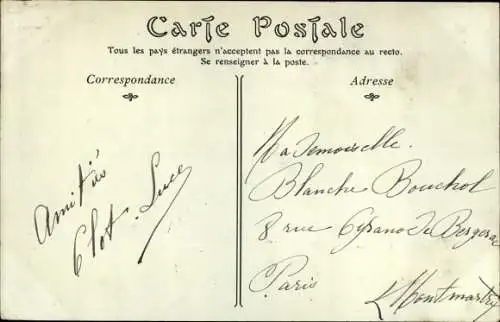 Carte Postale
Tous les pays étrangers n'acceptent pas la correspondance au recto.
Se renseigner à la poste.
Correspondance
Adresse
Amitiés
Clot. Luce
Mademoiselle.
Blanche Bouchot
8 rue Cyrano de Bergerac
Paris
Montmartre